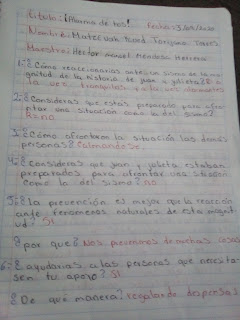 Titulo: ¡Alarma de tos! Fecha: 3/
Nombre:
Maestro: Hector Mendoza Herrera
1.-¿Como reaccionarias ante un sismo de la ma
gnitud de la historia de juan y julieta? R=
a la ves tranquilos y a la ves
2.-¿Consideras que estas preparado para afro
ntar una situación como la del sismo?
R= no
3.-¿Como afrontaron la situación las demás
personas? Calmandose
4.-¿Consideras que juan y julieta estaban
preparados para afrontar una situación
como la del sismo? no
5.-¿la prevención es mejor que la reacción
ante fenómenos naturales de este magnit
ud? SI
¿por que? Nos prevenimos de muchas cosas
6.-¿ayudarias a las personas que necesita
sen tu apoyo? SI
¿De que manera? regalarde despensas